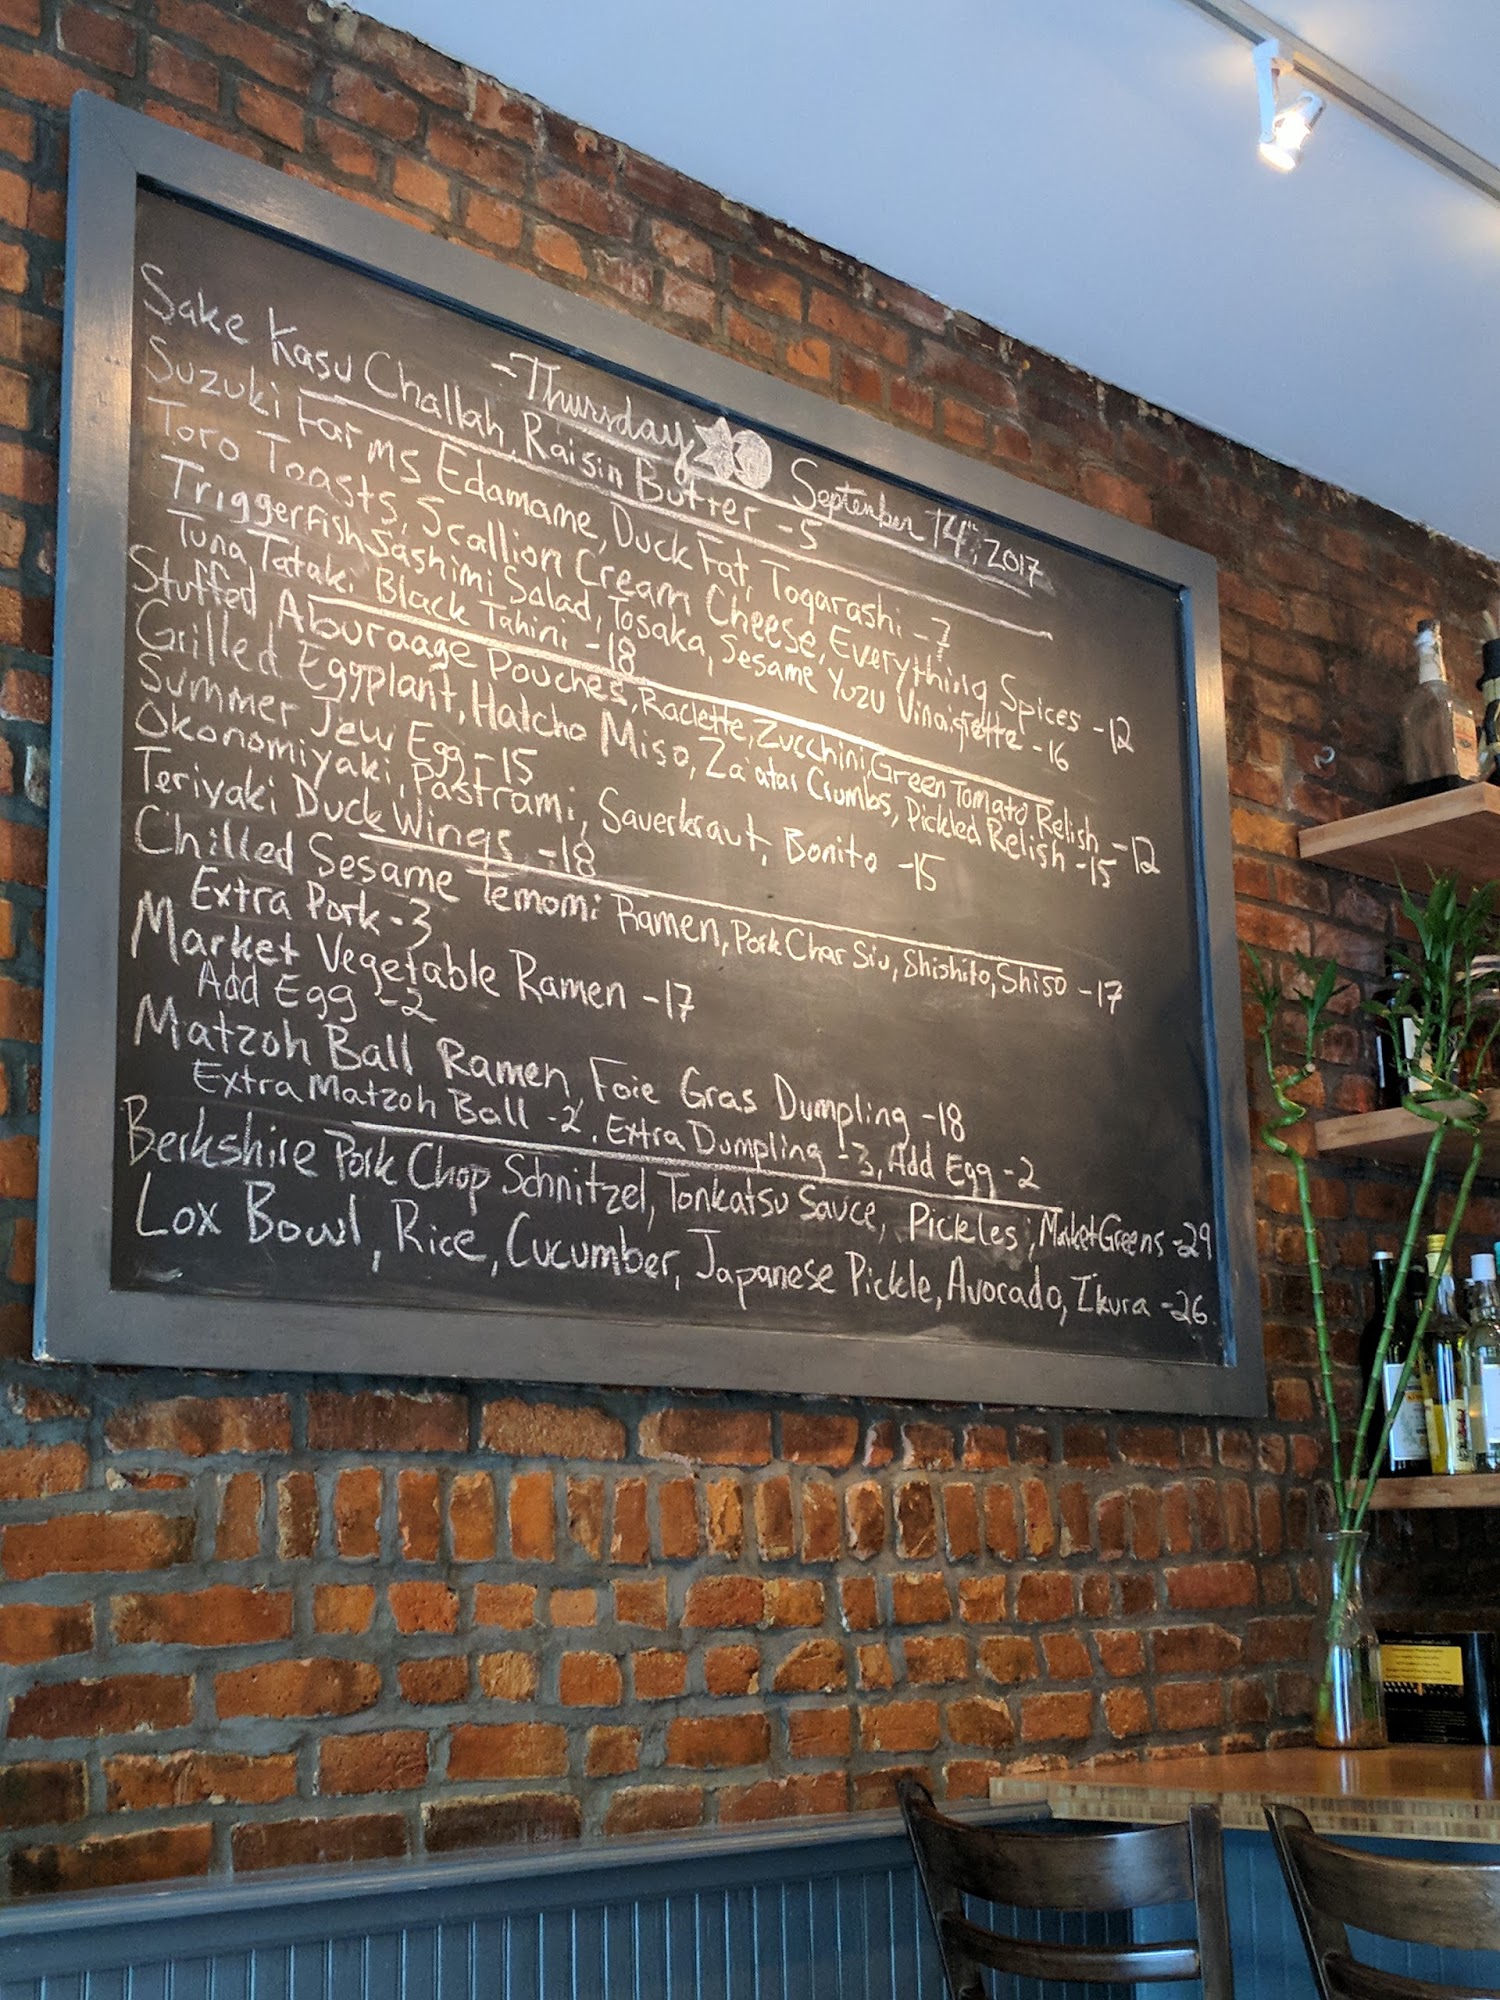 -Thursday September 14th, 2017
Sake Kasu Challah, Raisin Butter -5
Suzuki Farms Edamame, Duck Fat, Togarashi -7
Toro Toasts, Scallion Cream Cheese, Everything Spices -12
Triggerfish Sashimi Salad, Tosaka, Sesame Yuzu Vinaigrette -16
Tuna Tataki Black Tahini -18
Stuffed Aburaage Pouches, Raclette, Zucchini, Green Tomato Relish -12
Grilled Eggplant, Hatcho Miso, Za'atar Crumbs, Pickled Relish -15
Summer Jew Egg -15
Okonomiyaki, Pastrami, Sauerkraut, Bonito -15
Teriyaki Duck Wings -18
Chilled Sesame Temomi Ramen, Pork Char Siu, Shishito, Shiso -17
Extra Pork -3
Market Vegetable Ramen -17
Add Egg -2
Matzoh Ball Ramen, Foie Gras Dumpling -18
Extra Matzoh Ball -2, Extra Dumpling -3, Add Egg -2
Berkshire Pork Chop Schnitzel, Tonkatsu Sauce, Pickles, Market Greens -29
Lox Bowl, Rice, Cucumber, Japanese Pickle, Avocado, Ikura -26